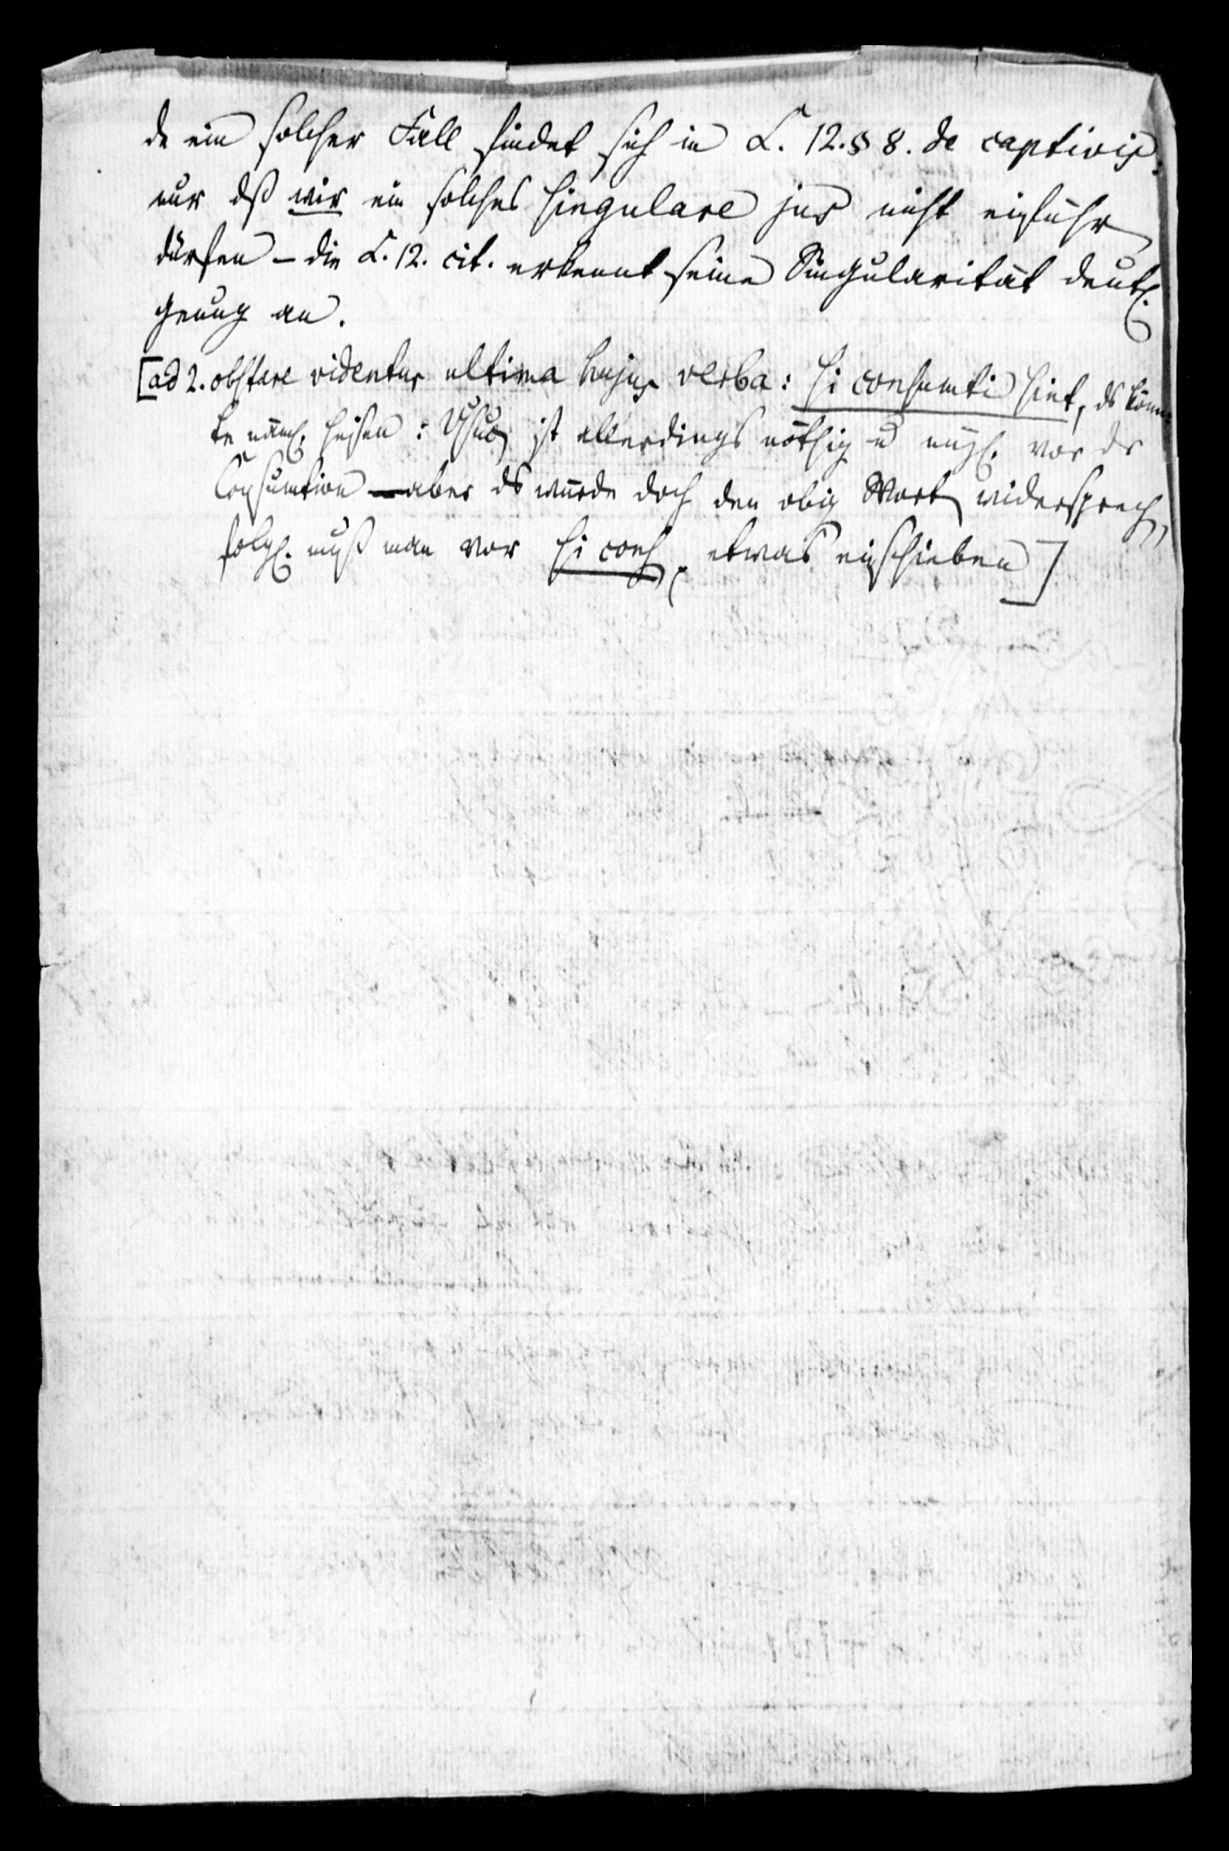 de ein solcher Fall findet sich in L. 12. § 8. de captivis:
nur dß wir ein solches singulare jus nicht einführ
dürfen – die L. 12. cit. erkennt seine Singularität deutl.
genug an.
[ad 2. obstare videntur ultima hujus verba: si consumti sint, ds könn
te näml. heißen: Usus ist allerdings nöthig u vor dr
Consumtion – aber ds würde doch den obig Wort widersprech,
folgl. muß man vor si cons. etwas einschieben]